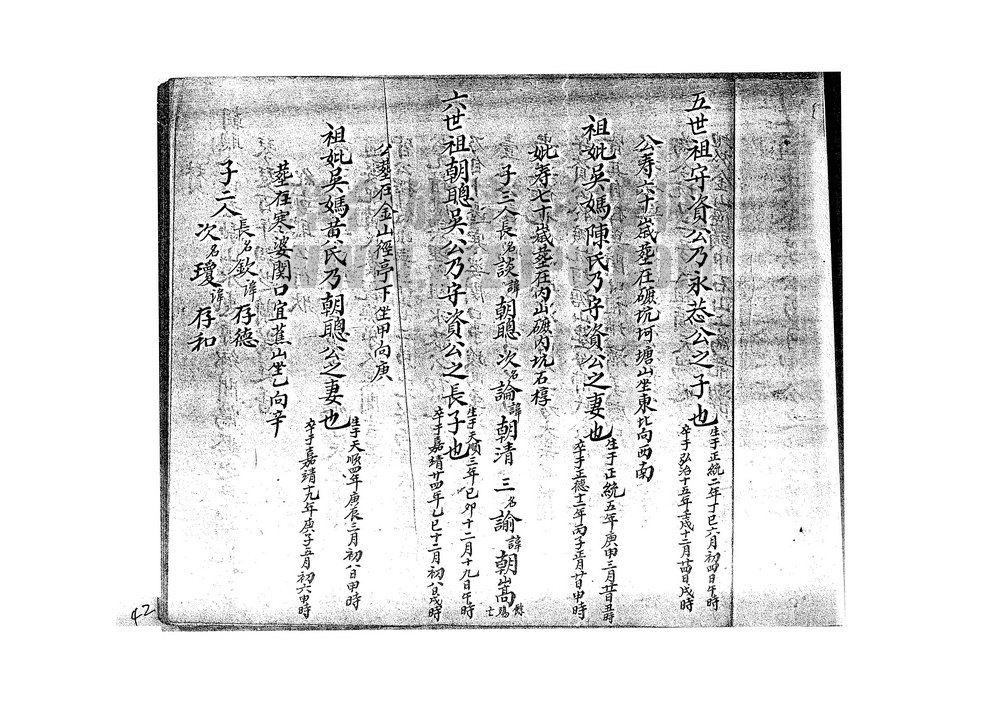 五世祖守資公乃永恭公之子也
生于正統二年丁巳六月初四日午時
卒于弘治十五年壬戌十二月廿四日戌時
公壽六十歲塟在礤坑坷塘山坐東北向西南
祖妣吳媽陳氏乃守資公之妻也
生于正統五年庚申三月廿日丑時
卒于正德十一年丙子正月廿日申時
妣壽七十歲塟在內山礤內坑石椁
子三人長名談諱朝聰次名論諱朝清三名諭諱朝嵩
六世祖朝聰吳公乃守資公之長子也
生于天順三年己卯十二月十九日午時
卒于嘉靖廿四年乙巳十二月初八日戌時
公塟在金山徑亭下坐甲向庚
祖妣吳媽黃氏乃朝聰公之妻也
生于天順四年庚辰三月初八日申時
卒于嘉靖十九年庚子五月初六申時
塟在寒婆㘓口宜蕉山坐乙向辛
子二人長名欽諱存德
次名瓊諱存和
42